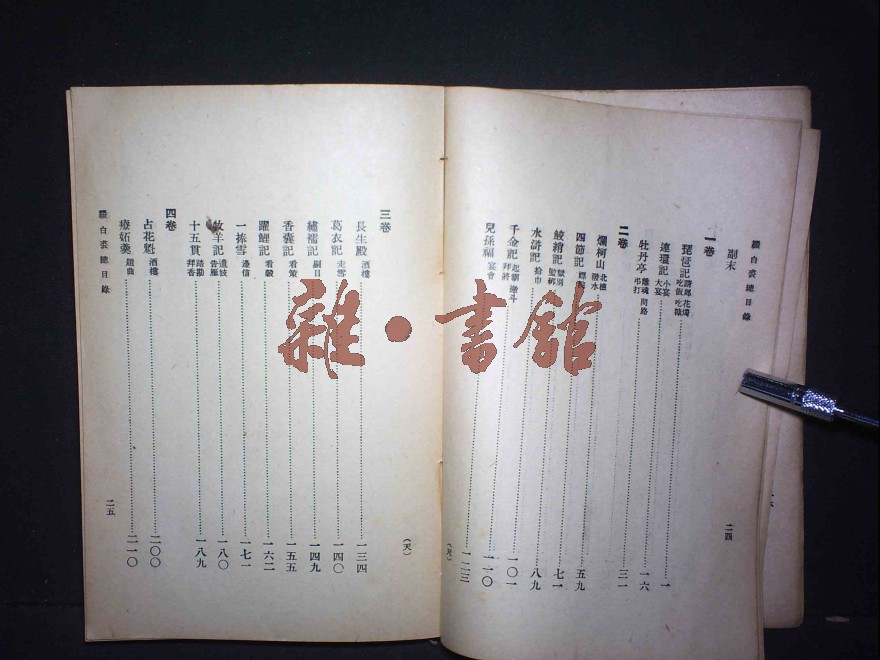 綴白裘總目錄
副末
一卷
琵琶記 請郎 花燭 吃飯 吃糠……一
連環記 小宴 大宴
牡丹亭 離魂 問路 弔打……一六
二卷……三一
爛柯山 北樵 潑水
四節記……五九
鮫綃記 監綁……七一
水滸記 拾巾……八九
千金記 起霸 撇斗 拜將……一〇一
兒孫福 宴會……一一〇
一二三
二四
三卷
長生殿 酒樓……一三四
葛衣記 走雪……一四〇
繡襦記 剔目……一四九
香囊記 看策……一五五
躍鯉記 看穀……一六二
一捧雪 邊信……一七一
牧羊記 遣妓 告雁……一八〇
十五貫 踏勘 拜香……一八九
四卷
占花魁 酒樓……二〇〇
療妬羹 題曲……二一〇
綴白裘總目錄
二五
(天)
雜●書館